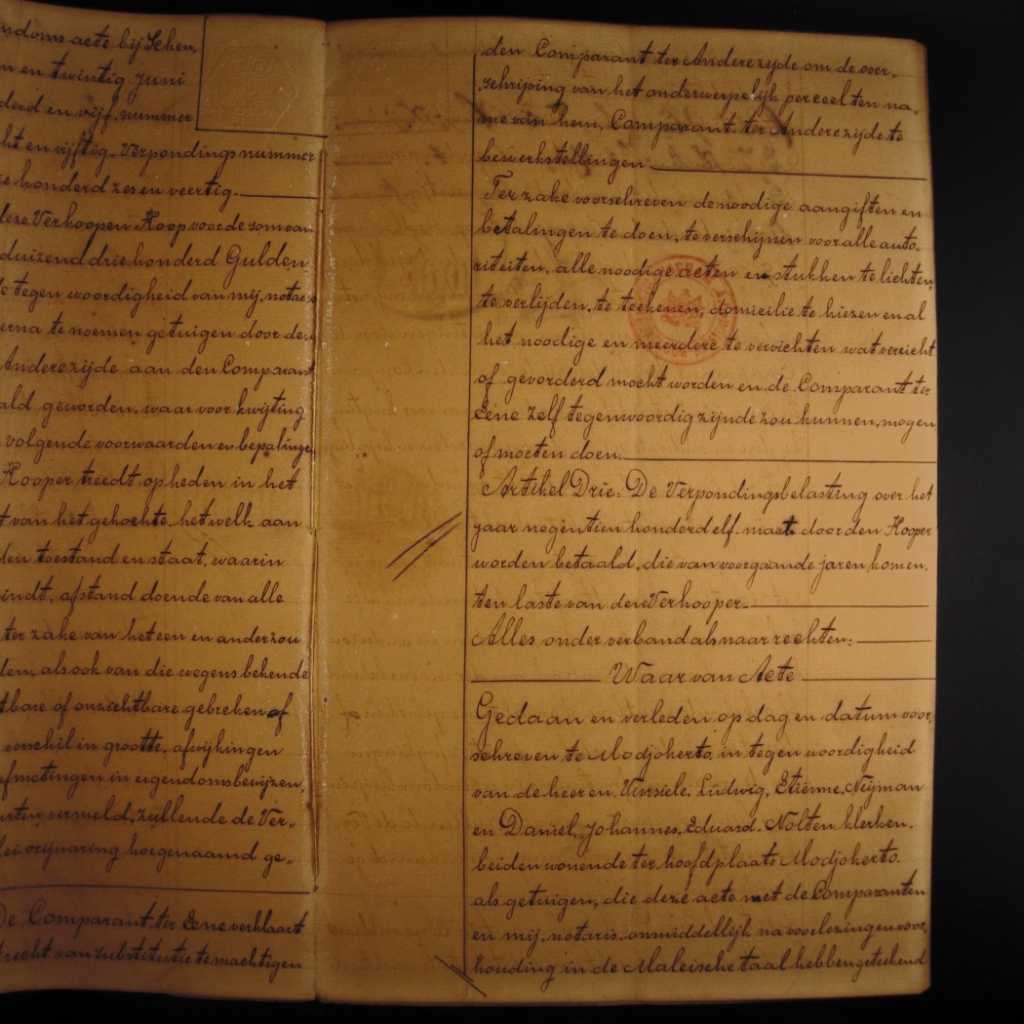 ndoms acte bij Schen,
n en twintig Juni
derd en vijf, nummer
ht en vijftig. Verpondings nummer
ie honderd zes en veertig.
deze Verkoop en Koop voor de som van
duizend drie honderd Gulden
tegenwoordigheid van mij, notaris
erna te noemen getuigen door den
Anderezijde aan den Comparant
ald geworden, waar voor kwijting
volgende voorwaarden en bepalingen
Kooper treedt op heden in het
t van het gekochte, hetwelk aan
den toestand en staat, waarin
indt, afstand doende van alle
ter zake van het een en ander zou
den, als ook van die wegens bekende
tbare of onzichtbare gebreken of
verschil in grootte, afwijkingen
fmetingen in eigendomsbewijzen,
vermeld, zullende de Ver-
lei vrijwaring hoegenaamd ge-
De Comparant ter Eene verklaart
recht van substitutie te machtigen
den Comparant ter Anderezijde om de over,
schrijving van het onderwerpelijk perceel ten na,
me van hem, Comparant ter Anderezijde te
bewerkstellingen
Ter zake voorschreven de noodige aangiften en
betalingen te doen, te verschijnen voor alle auto,
riteiten, alle noodige acten en stukken te lichten,
te verlijden, te teekenen, domicilie te kiezen en al
het noodige en meerdere te verrichten wat vereischt
of gevorderd mocht worden en de Comparant ter
Eene zelf tegenwoordig zijnde zou kunnen, mogen
of moeten doen.
Artikel Drie: De Verpondingsbelasting over het
jaar negentien honderd elf moet door den Kooper
worden betaald, die van voorgaande jaren komen,
ten laste van den Verkooper.
Alles onder verband als naar rechten:
Waar van Acte
Gedaan en verleden op dag en datum voor,
schreven te Modjokerto, in tegenwoordigheid
van de heeren Ludwig, Etienne, Neijman
en Daniel, Johannes, Eduard, Nolten klerken,
beiden wonende ter hoofdplaats Modjokerto
als getuigen, die deze acte met de Comparanten
en mij, notaris, onmiddellijk na voorlezing en voor,
houding in de Maleische taal hebben geteekend